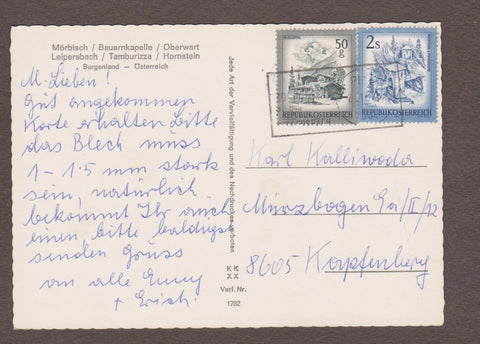 Mörbisch / Bauernkapelle / Oberwart
Loipersbach / Tamburizza / Hornstein
Burgenland — Österreich
M. Lieben!
Gut angekommen
Karte erhalten bitte
das Blech muss
1 - 1.5 mm stark
sein, natürlich
bekommt Ihr auch
einen, bitte baldigst
senden Gruss
an alle Emmy
+ Erich.
Jede Art der Vervielfältigung und des Nachdruckes verboten
KK
XX
Verl. Nr.
1782
50
g
REPUBLIK ÖSTERREICH
2s
REPUBLIK ÖSTERREICH
Karl Kalliwoda
Mürzbogen 9a/II/12
8605 Kapfenberg